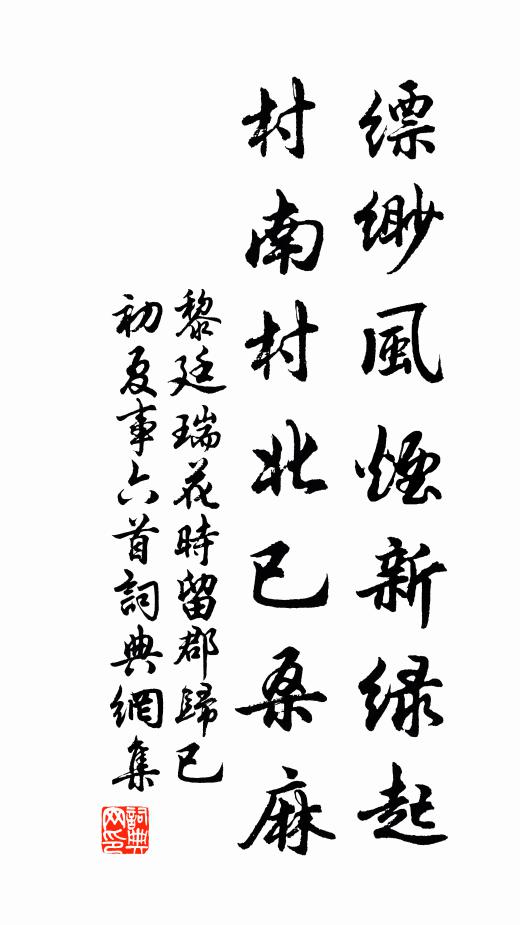 缥缈風煙新緑起
村南村北已桑麻
黎廷瑞花時留郡歸已
初夏事六首詞典網集
詞典
网印